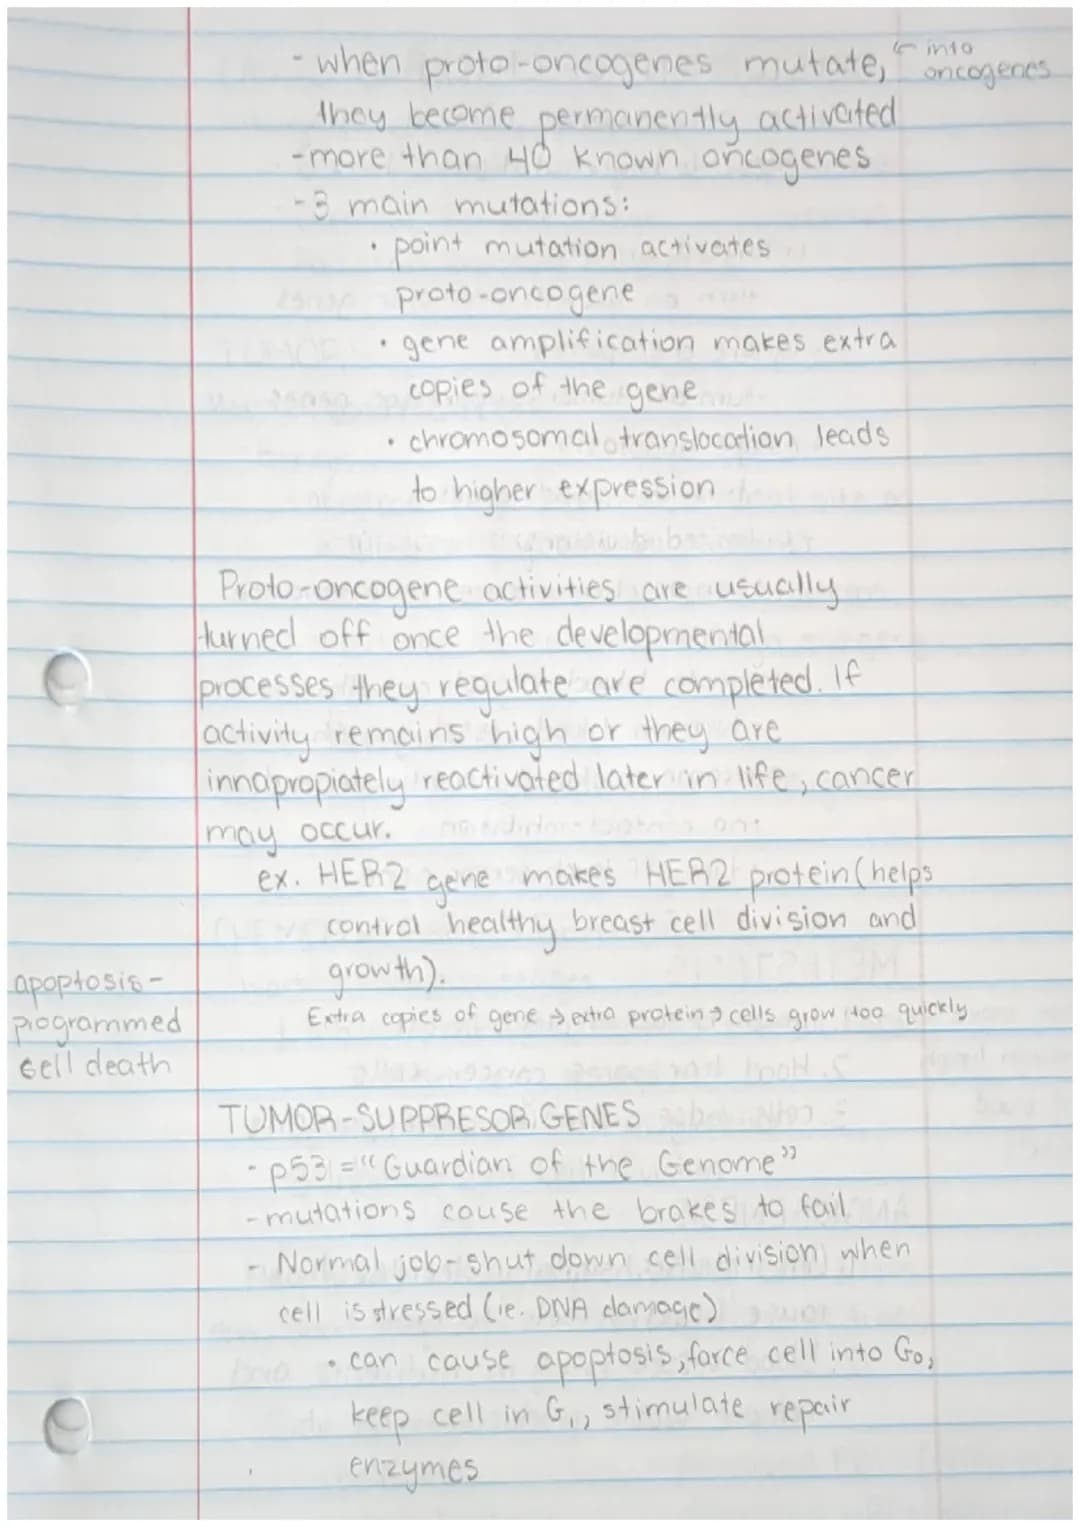 - when proto-oncogenes mutate, ← into
oncogenes
they become permanently activated
-more than 40 known oncogenes
-3 main mutations:
• point mutation activates
proto-oncogene
• gene amplification makes extra
copies of the gene
• chromosomal translocation leads
to higher expression
Proto-oncogene activities are usually
turned off once the developmental
processes they regulate are completed. If
activity remains high or they are
innapropiately reactivated later in life, cancer
may occur.
ex. HER2 gene makes HER2 protein (helps
control healthy breast cell division and
growth).
apoptosis -
programmed
cell death
Extra copies of gene → extra protein → cells grow too quickly
TUMOR-SUPPRESOR GENES
- p53 = "Guardian of the Genome"
- mutations cause the brakes to fail
- Normal job- shut down cell division when
cell is stressed (ie. DNA damage)
• can cause apoptosis, force cell into G₀,
keep cell in G₁, stimulate repair
enzymes